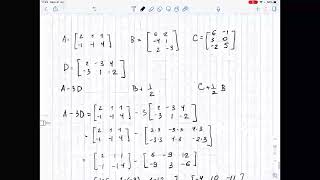 A = [2 1 1; -1 -1 4] B = [6 2; -4 1; 2 -3] C = [6 -1; 3 0; -2 5]
D = [2 -3 4; -3 1 -2]
A - 3D B + 1/2 C + 1/2 B
A - 3D = [2 1 1; -1 -1 4] - 3 [2 -3 4; -3 1 -2]
= [2 1 1; -1 -1 4] - [2·3 -3·3 4·3; -3·3 1·3 -2·3]
= [2 1 1; -1 -1 4] - [6 -9 12; -9 3 -6]